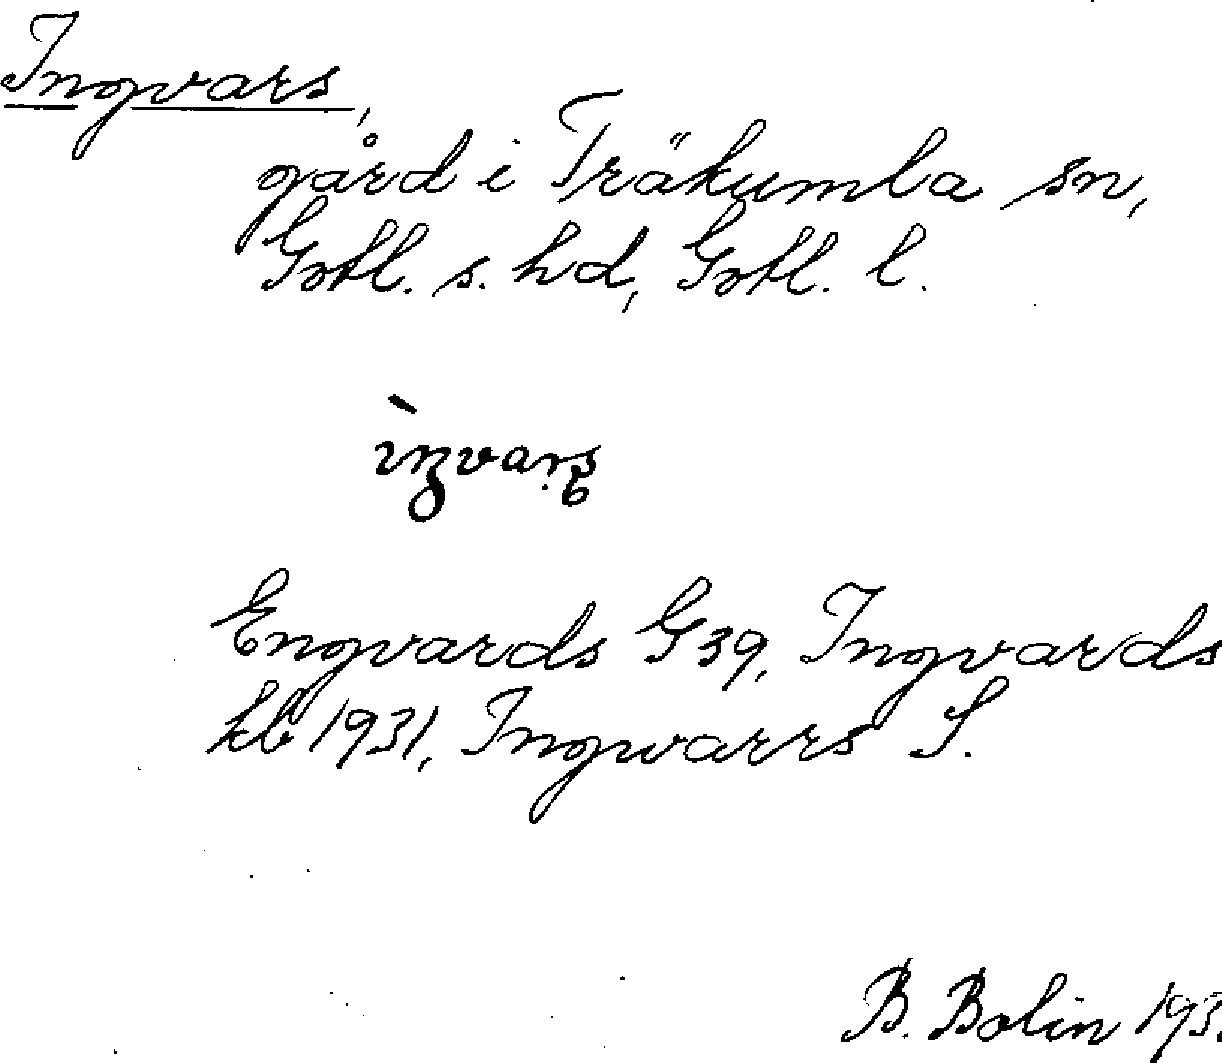 Ingvars,
gård i Träkumla sn,
Gotl. s. hd, Gotl. l.
Engvards G39, Ingvards
kb 1931, Ingwarrs S.
B. Bolin 193